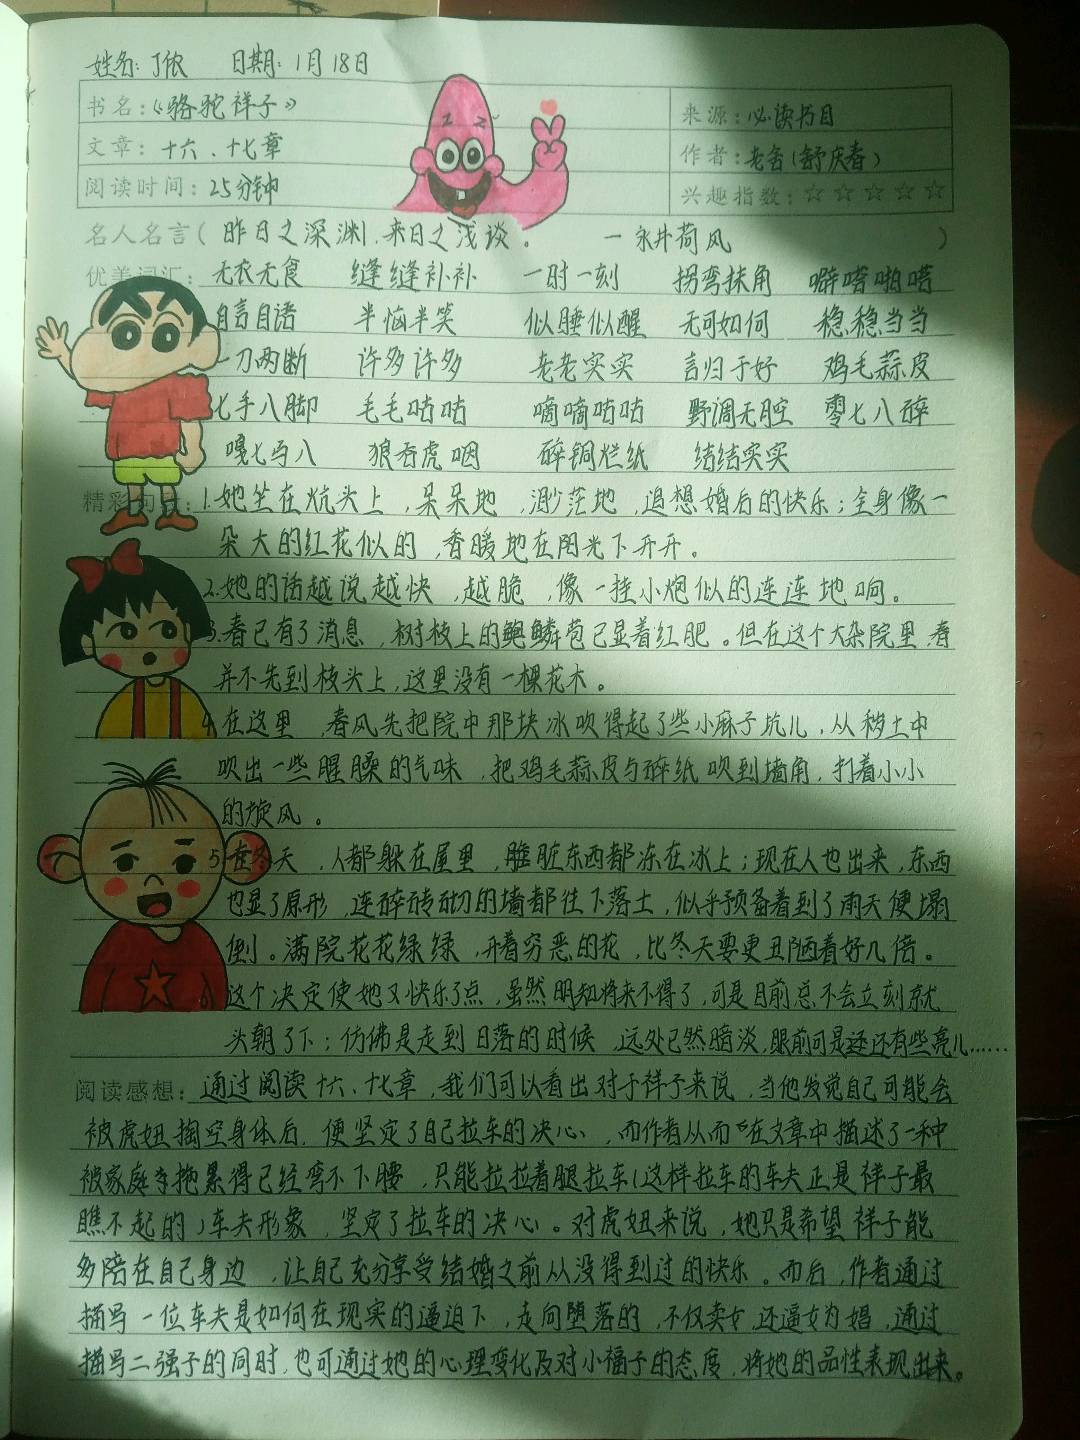 姓名:丁侬 日期:1月18日
书名:《骆驼祥子》 来源:必读书目
文章:十六、十七章 作者:老舍(舒庆春)
阅读时间:25分钟 兴趣指数:☆☆☆☆☆
名人名言(昨日之深渊,来日之浅谈。 —永井荷风)
优美词汇:无衣无食 缝缝补补 一时一刻 拐弯抹角 噼嗒啪嗒
自言自语 半恼半笑 似睡似醒 无可如何 稳稳当当
一刀两断 许多许多 老老实实 言归于好 鸡毛蒜皮
七手八脚 毛毛咕咕 嘀嘀咕咕 野调无腔 零七八碎
嘎七马八 狼吞虎咽 碎铜烂纸 结结实实
精彩句:1.她坐在炕头上,呆呆地,渺茫地,追想婚后的快乐;全身像一
朵大的红花似的,香暖地在阳光下开开。
2.她的话越说越快,越脆,像一挂小炮似的连连地响。
3.春已有了消息,树枝上的鳞苞已显着红肥。但在这个大杂院里,春
并不先到枝头上,这里没有一棵花木。
4.在这里,春风先把院中那块冰吹得起了些小麻子坑儿,从秽土中
吹出一些腥臊的气味,把鸡毛蒜皮与碎纸吹到墙角,打着小小
的旋风。
5.在冬天,人都躲在屋里,脏东西都冻在冰上;现在人也出来,东西
也显了原形,连碎砖砌的墙都往下落土,似乎预备着到了雨天便塌
倒。满院花花绿绿,开着穷恶的花,比冬天要更丑陋着好几倍。
6.这个决定使她又快乐了点,虽然明知将来不得了,可是目前总不会立刻就
头朝了下;仿佛是走到日落的时候,远处已然暗淡,眼前可是还有些亮儿……
阅读感想:通过阅读十六、十七章,我们可以看出对于祥子来说,当他发觉自己可能会
被虎妞掏空身体后,便坚定了自己拉车的决心,而作者从而在文章中描述了一种
被家庭拖累得已经弯不下腰,只能拉拉着腿拉车(这样拉车的车夫正是祥子最
瞧不起的)车夫形象,坚定了拉车的决心。对虎妞来说,她只是希望祥子能
多陪在自己身边,让自己充分享受结婚之前从没得到过的快乐。而后,作者通过
描写一位车夫是如何在现实的逼迫下,走向堕落的,不仅卖女,还逼女为娼,通过
描写二强子的同时,也可通过她的心理变化及对小福子的态度,将她的品性表现出来。